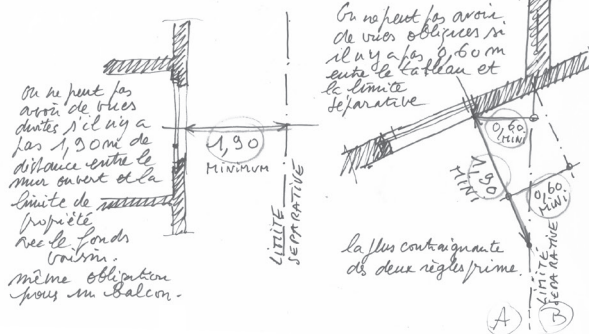 On ne peut pas
avoir de vues
droites s'il n'y a
pas 1,90 m de
distance entre le
mur ouvert et la
limite de
propriété
avec le fonds
voisin.
même obligation
pour un balcon.
1,90
MINIMUM
LIMITE
SEPARATIVE
On ne peut pas avoir
de vues obliques si
il n'y a pas 0,60 m
entre le tableau et
la limite
séparative
0,60
MINI
1,90
MINI
0,60
MINI
la plus contraignante
des deux règles prime.
LIMITE
SEPARATIVE
A
B